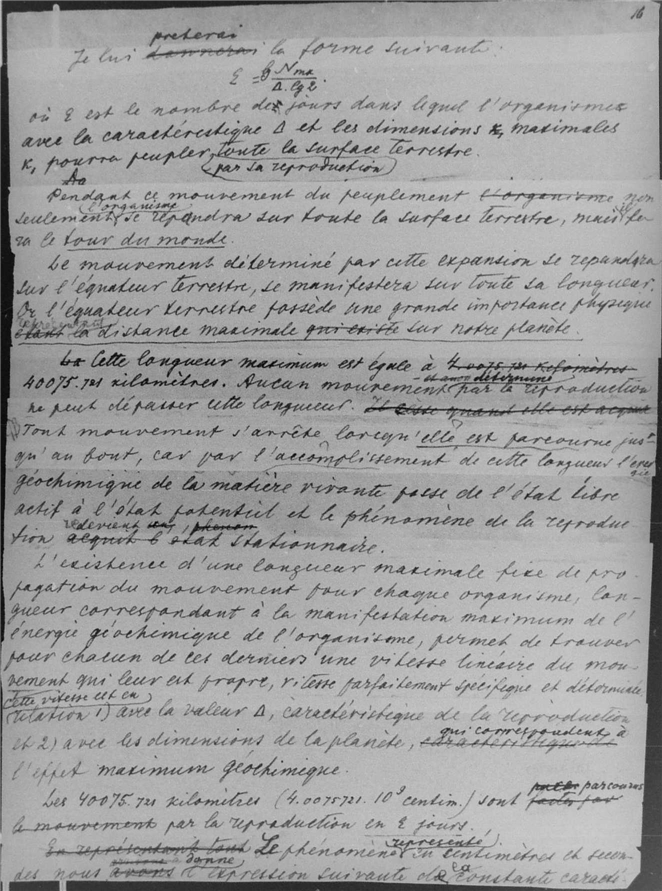 16
preterai
Je lui donnerai la forme suivante:
Ɛ = lg Nmx / Δ. lg 2.
où Ɛ est le nombre des jours dans lequel l'organisme
avec la caractéristique Δ et les dimensions κ, maximales
κ, pourra peupler, toute la surface terrestre.
(par sa reproduction)
Pendant ce mouvement du peuplement l'organisme non
l'organisme
seulement se repandra sur toute la surface terrestre, mais fe-
ra le tour du monde.
Le mouvement déterminé par cette expansion se repandra
sur l'équateur terrestre, se manifestera sur toute sa longueur.
Or l'équateur terrestre possède une grande importance physique
étant la distance maximale qui existe sur notre planète.
La Cette longueur maximum est égale à 40075.721 kilomètres
40075.721 kilomètres. Aucun mouvement par la reproduction
déterminé
ne peut dépasser cette longueur. Il cesse quand elle est acquise
Tout mouvement s'arrête lorsqu'elle est parcourue jus-
qu'au bout, car par l'accomplissement de cette longueur l'ener-
gie
géochimique de la matière vivante passe de l'état libre
actif à l'état potentiel et le phénomène de la reproduc-
redevient
tion acquit l'état stationnaire.
L'existence d'une longueur maximale fixe de pro-
pagation du mouvement pour chaque organisme, lon-
gueur correspondant à la manifestation maximum de l'
énergie géochimique de l'organisme, permet de trouver
pour chacun de ces derniers une vitesse linéaire du mou-
vement qui leur est propre, vitesse parfaitement spécifique et déterminée
Cette vitesse est en
relation 1) avec la valeur Δ, caractéristique de la reproduction
qui correspondent à
et 2) avec les dimensions de la planète, caractéristique de
l'effet maximum géochimique.
parcourus
Les 40075.721 kilomètres (4.0075721. 10⁹ centim.) sont faits par
le mouvement par la reproduction en Ɛ jours.
représenté
En représentant tout Le phénomène en centimètres et secon-
donne
des nous avons l'expression suivante de constante caracté-